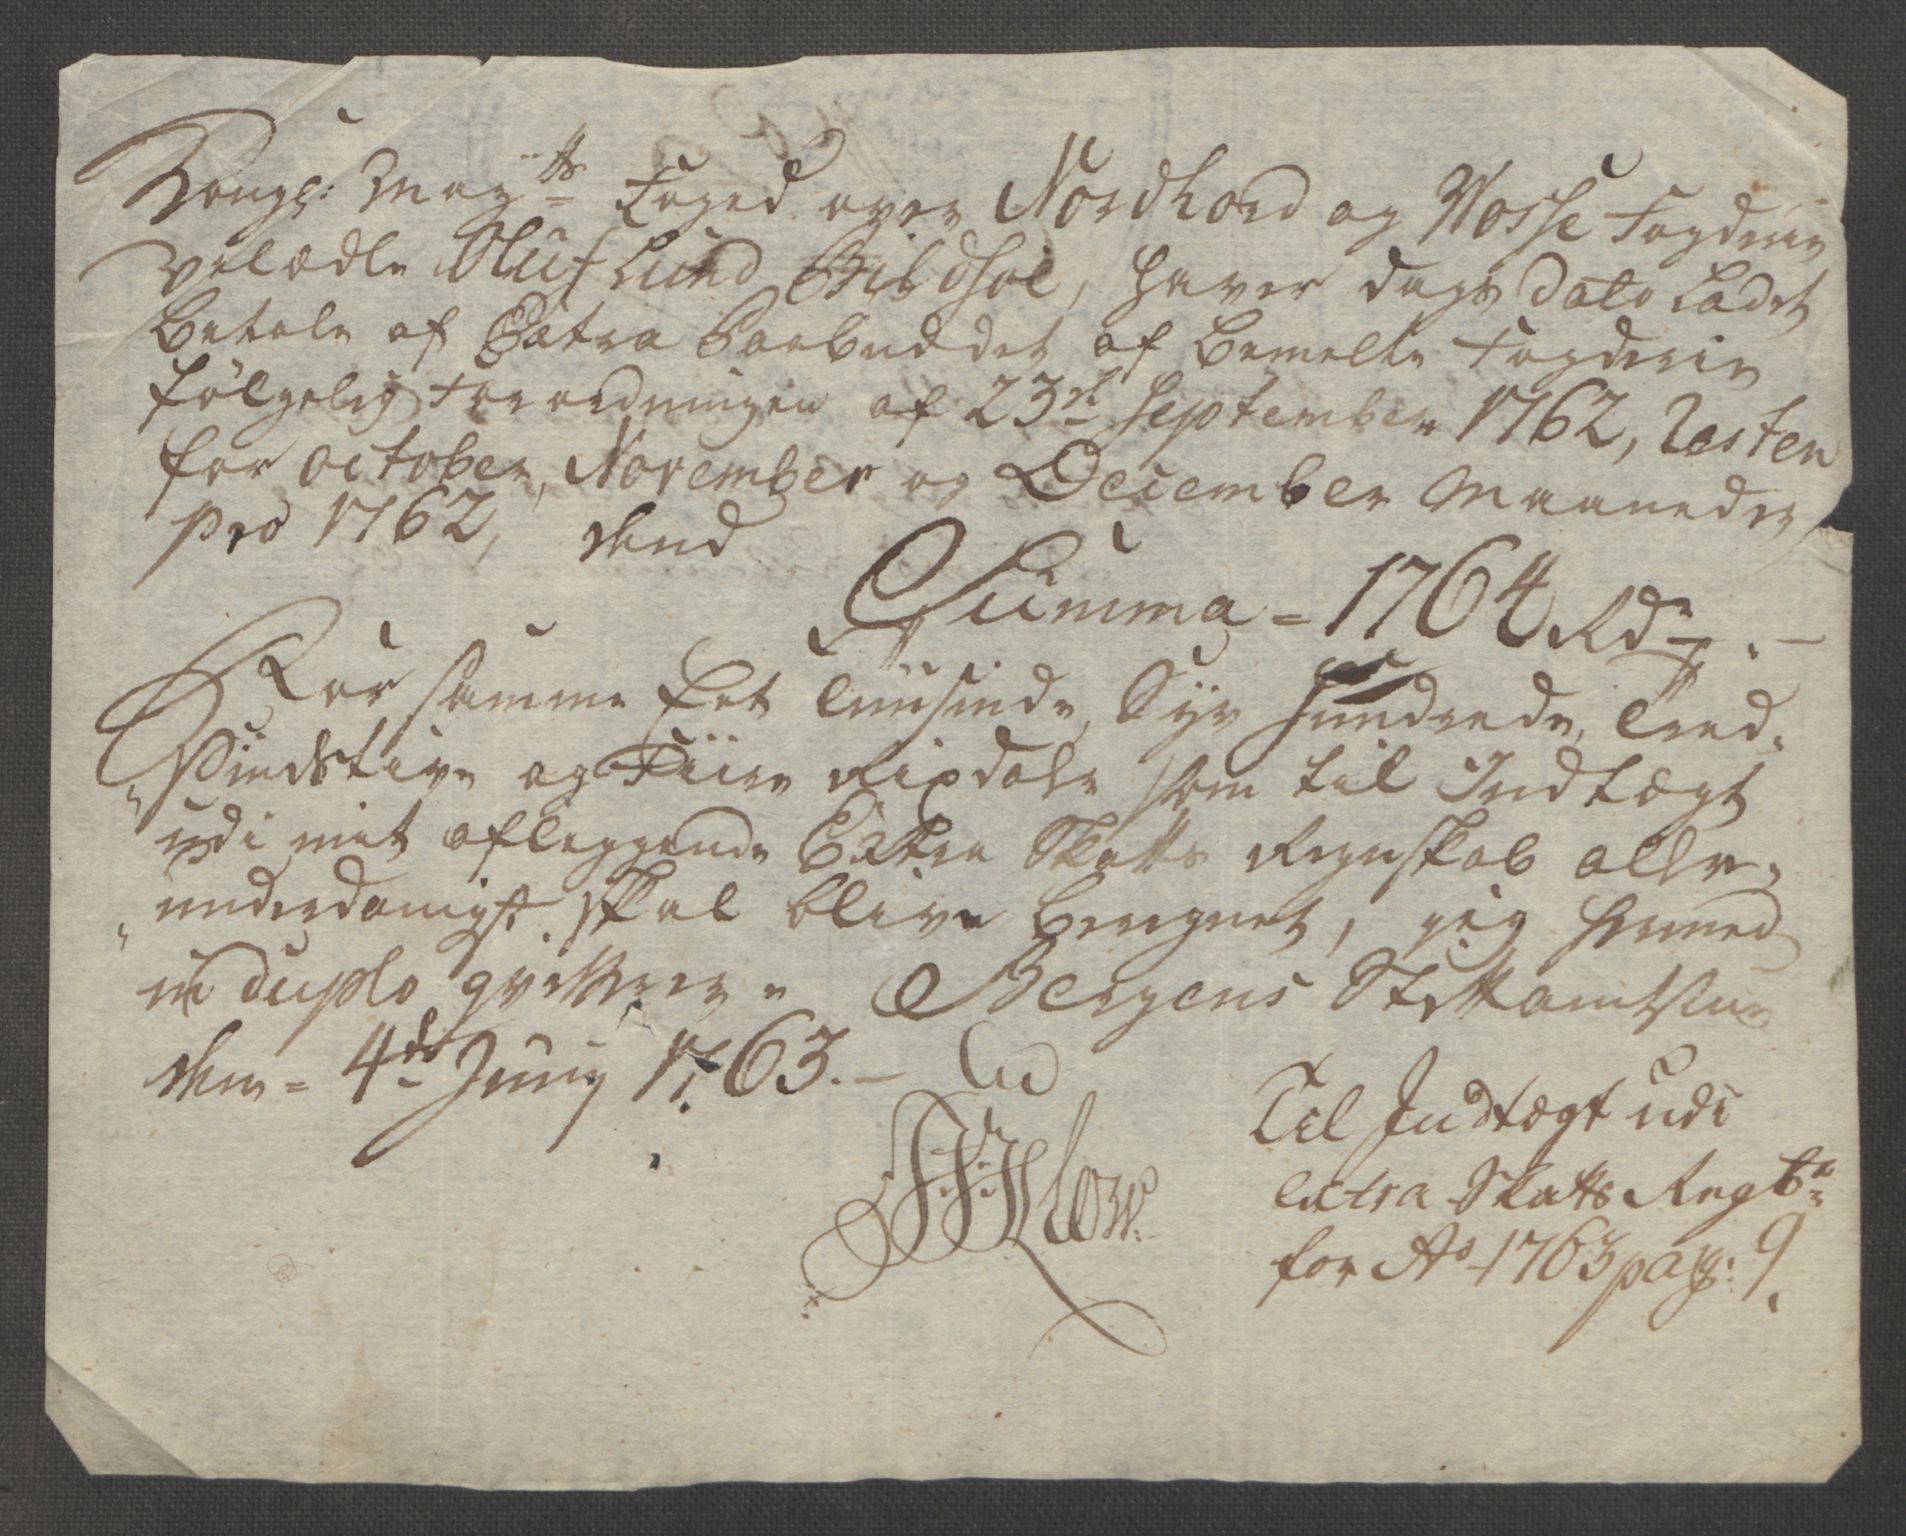 Kongl: May:tts Foged over Nordhord og Wosse Fogderie
velædle Oluf Lund Bildsøe, haver dags dato ladet
betale af Extra Paabuddet af bemelte Fogderie
følgelig Forordningen af 23de September 1762, Resten
for october, November og December Maaneder
pro 1762, med
Summa = 1764 Rdr -.-
For samme Eet tuusinde, Syv hundrede, Tred-
sindstive og Fiire Rixdaler som til Indtægt
udi mit afleggende Extra Skatts Regnskab aller-
underdanigst skal blive beregnet, jeg hermed
in duplo qvitterer. Bergens Stiftamtstue
den = 4de Juny 1763. -
Til Indtægt udi
Extra Skatts Regsk:
for Ao 1763 pag: 9.